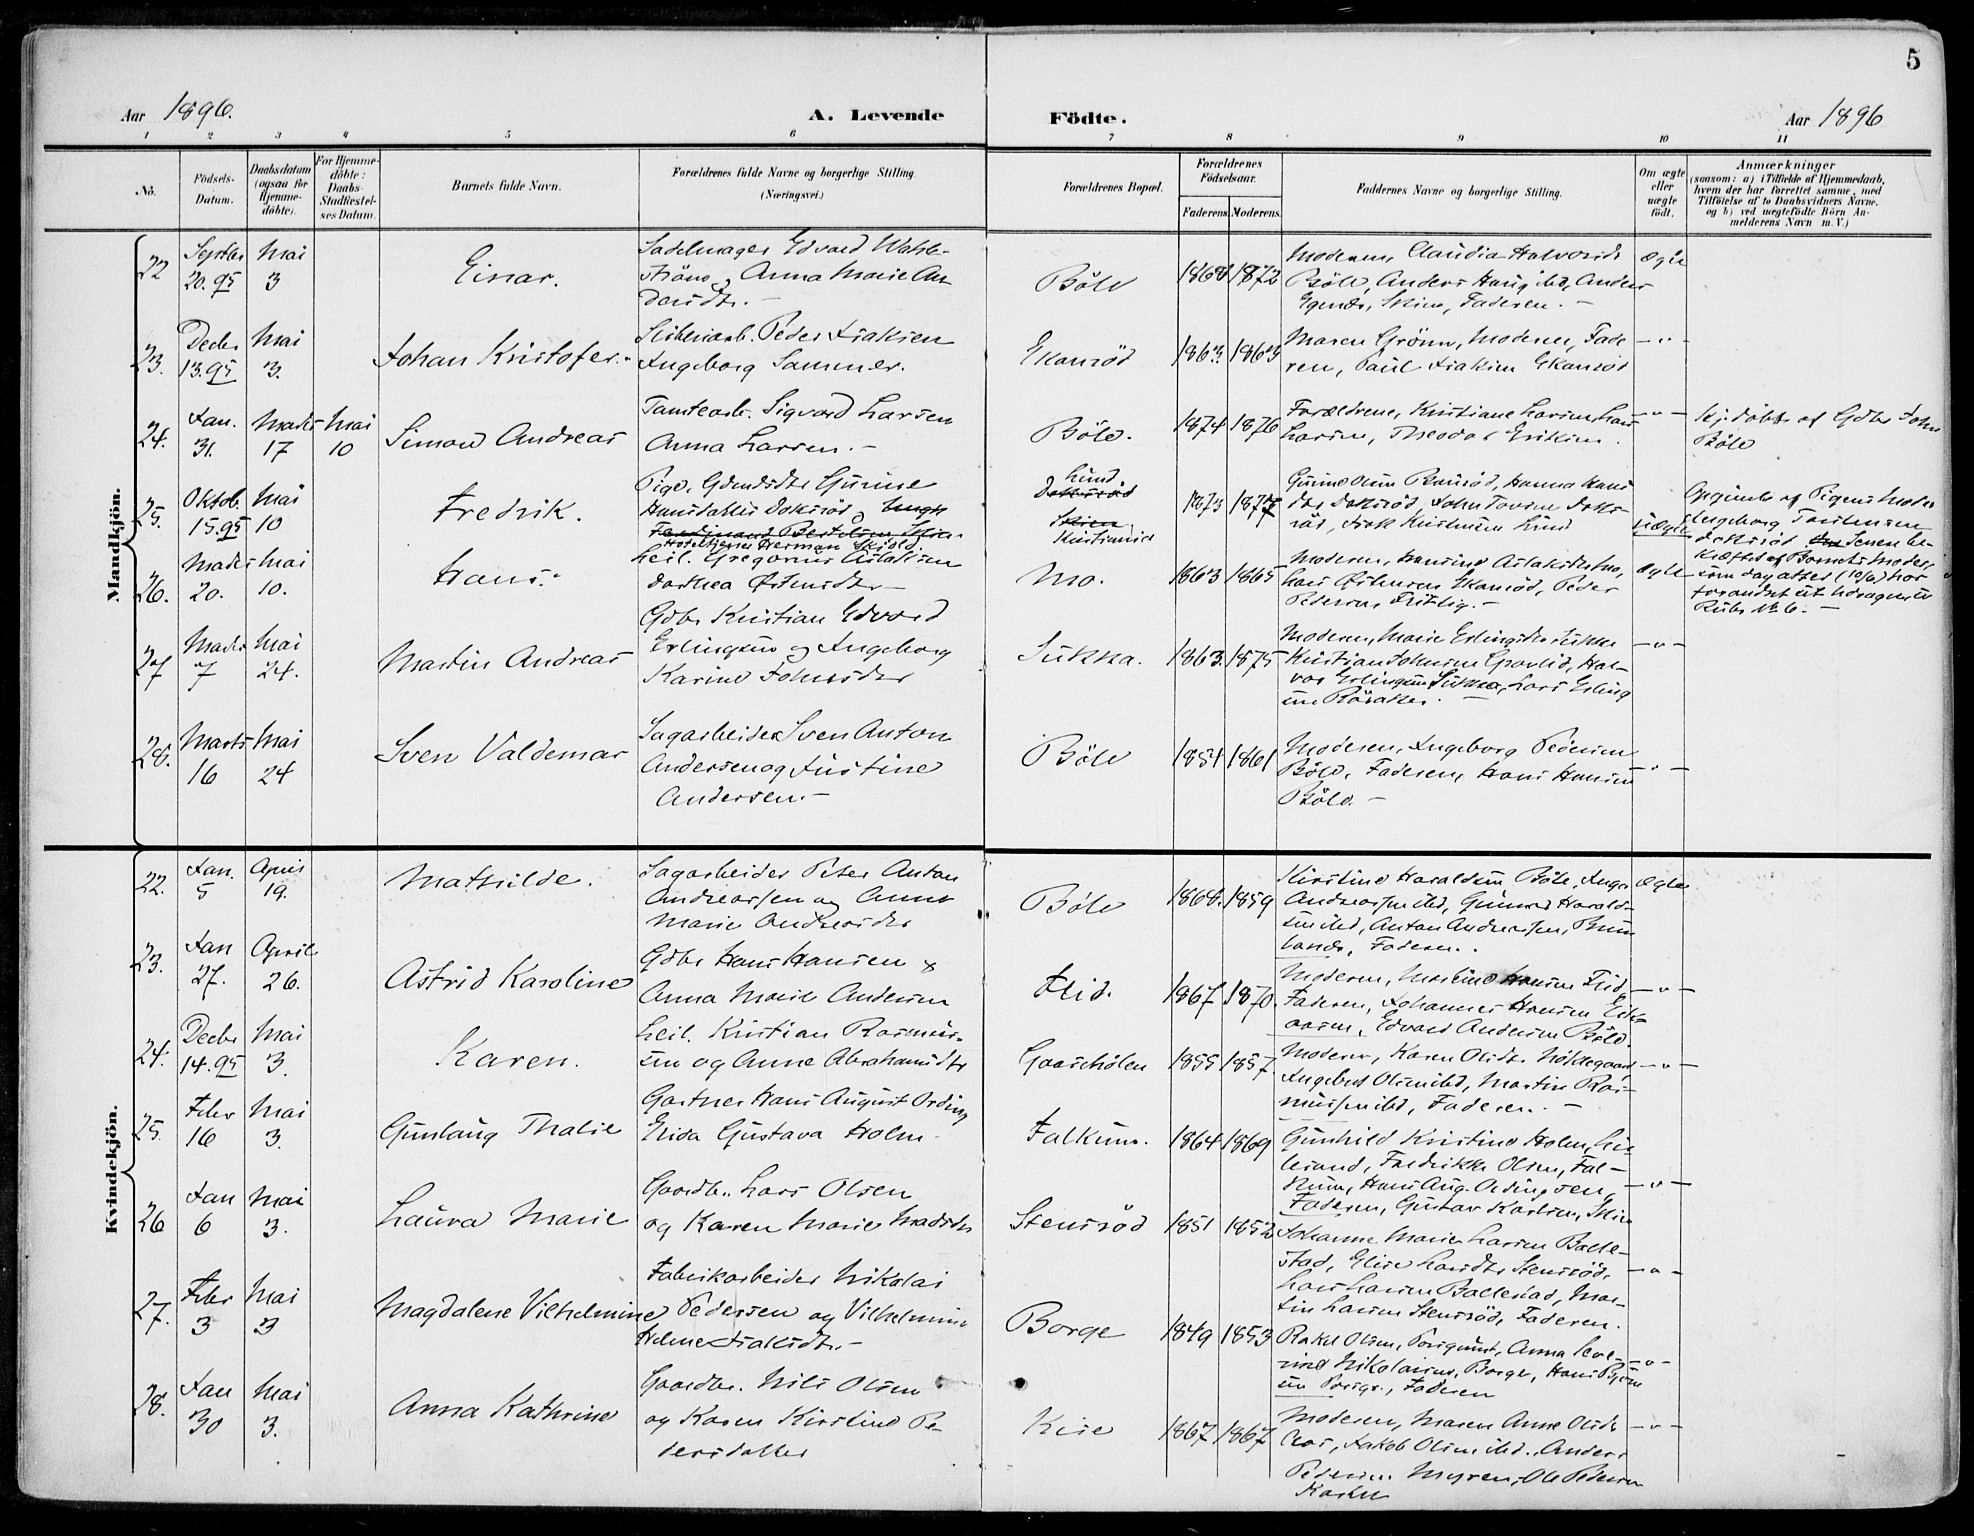 5
Aar 1896.
A. Levende
Födte.
Aar 1896
1 2 3 4 5 6 7 8 9 10 11
No.
Födsels-
Datum.
Daabsdatum
(ogsaa for
Hjemme-
döbte).
For Hjemme-
döbte:
Daabs-
Stadfæstel-
ses Datum.
Barnets fulde Navn.
Forældrenes fulde Navne og borgerlige Stilling
(Næringsvei.)
Forældrenes Bopæl.
Forældrenes
Födselsaar.
Faderens. Moderens.
Faddernes Navne og borgerlige Stilling.
Om ægte
eller
uægte
födt.
Anmærkninger
(saasom: a) i Tilfælde af Hjemmedaab,
hvem der har forrettet samme, med
Tilföielse af to Daabsvidners Navne,
og b) ved uægtefödte Börn An-
melderens Navn m. V.)
Mandkjön.
22 Septbr 20. 95 Mai 3
Einar.
Sadelmager Edvard Wahl-
ström, Anna Marie An-
dersdtr. -
Böle
1868 1872
Moderen, Claudia Halvorsdr
Böle, Anders Haug ibd, Anders
Egende, Skien, Faderen. -
Ægte
23. Decbr 13. 95 Mai 3.
Johan Kristofer.
Peder Isaksen
Ingeborg Sammer.
Ekornröd
1863 1863
Maren Grönn, Moderen, Fade
ren, Paul Isaksen Ekornröd
- " -
24. Jan. 31. Marts 17 Mai 10
Simon Andreas
Tomtearb. Sigvard Larsen
Anna Larsen. -
Böle.
1874 1876
Forældrene, Kristiane Larsen, Lars
Larsen, Theodor Eriksen.
- " -
Hj. döbt af Gdbr John
Böle
25. Oktob. 15. 95 Mai 10
Fredrik.
Pige, Gdmdsdtr Gunine
Hansdatter Doksröd og Ungk
Ferdinand Bertelsen Skien.
Hoteltjener Herman Skjold
Lund
Doksröd
Skien
Kristiania
1873 1877
Gunine Olsen Ramsöd, Hanna Hans
dtr Doksröd, John Tovsen Doks-
röd, Isak Kristensen Lund
Uægte
Opgivende af Pigens Moder
Ingeborg Torstensen
Doksröd Senere be-
kræftet af Barnets Moder,
som dag atter (10/6) har
forandret ut Udragene i
Rubr. No 6. -
26. Marts 20. Mai 10.
Hans. -
Leil. Gregorius Aslaksen
Dorthea Østensdtr -
Mo.
1863 1865
Moderen, Hansine Aslaksdtr Mo,
Lars Østensen Ekornröd, Peder
Pedersen Fritlig. -
Ægte
27 Marts 7 Mai 24.
Martin Andreas
Gdbr Kristian Edvard
Erlingsen og Ingeborg
Karine Johnsdtr
Sukka.
1863. 1875
Moderen, Marie Erlingsdtr Sukka
Kristian Johnsen Gravlid, Hal-
vor Erlingsen Sukka, Lars Erling
sen Röraker. -
- " -
28. Marts 16 Mai 24
Sven Valdemar
Sagarbeider Sven Anton
Andersen og Justine
Andersen. -
Böle
1854 1861
Moderen, Ingeborg Pedersen
Böle, Faderen, Hans Hansen
Böle. -
- " -
Kvindekjön.
22. Jan. 5 April 19.
Mathilde.
Sagarbeider Peter Anton
Andreassen og Anne
Marie Andersdtr
Böle
1868. 1859
Kirstine Haraldsen Böle, Inga
Andreassen ibd, Gunnar Harald-
sen ibd, Anton Andreassen, Brun
lanæs, Faderen.
Ægte
23. Jan 27. April 26.
Astrid Karoline
Gdbr Hans Hansen &
Anna Marie Andersen
Flid.
1867 1870.
Moderen, Marline Hansen Flid,
Faderen, Johannes Hansen Eik-
aasen, Edvard Andersen Böle.
- " -
24. Decbr 14. 95 Mai 3.
Karen.
Leil. Kristian Rasmus-
sen og Anne Abrahamsdtr
Gaasehölen
1855 1857.
Moderen, Karen Olsdtr Nöklegaard
Ingebret Olsen ibd, Martin Ras-
mussen ibd, Faderen. -
- " -
25. Febr 16 Mai 3.
Gunlaug Thalie
Gartner Hans August Ording
Elida Gustava Holm.
Falkum.
1864 1869
Gunhild Kristine Holm, Lil-
lesand, Fredrikke Olsen, Fal-
kum, Hans Aug. Ordingsen,
Faderen, Gustav Karlsen, Skien
- " -
26 Jan 6 Mai 3.
Laura Marie
Gaardbr. Lars Olsen
og Karen Marie Madsdtr
Stensröd
1851 1852
Johanne Marie Larsen Balle-
stad, Elise Larsdtr Stensröd,
Lars Larsen Ballestad, Mar-
tin Larsen Stensröd, Faderen.
- " -
27. Febr 3 Mai 3
Magdalene Vilhelmine
Fabrikarbeider Nikolai
Pedersen og Vilhelmine
Helene Isaksdtr. -
Borge
1849 1853
Rakel Olsen, Porsgrund, Anna Seve-
rine Nikolaisen, Borge, Hans Björn
sen Porsgr., Faderen
- " -
28. Jan 30 Mai 3.
Anna Kathrine
Gaardbr. Nils Olsen
og Karen Kirstine Pe-
dersdatter
Kise
1867 1867
Moderen, Maren Anne Olsdtr
Aas, Jakob Olsen ibd., Anders
Pedersen Myren, Ole Pedersen
- " -